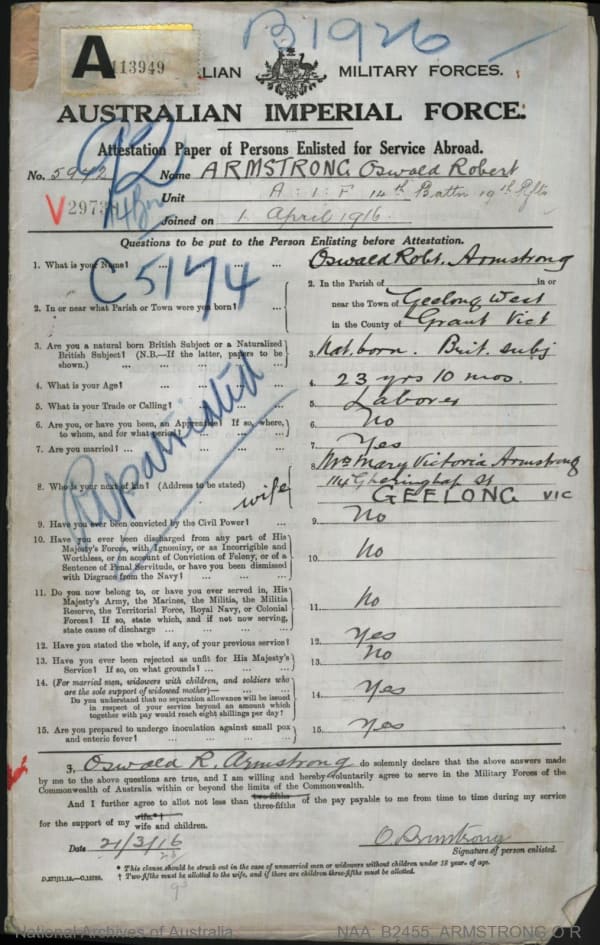 B1926
A 113949
AUSTRALIAN MILITARY FORCES.
AUSTRALIAN IMPERIAL FORCE.
Attestation Paper of Persons Enlisted for Service Abroad.
No. 5972 Name ARMSTRONG Oswald Robert
Unit A.I.F 14th Battn 19th Rfts
V2973
Joined on 1 April 1916.
Questions to be put to the Person Enlisting before Attestation.
1. What is your Name? ... ... ... Oswald Robt. Armstrong
C5174
2. In or near what Parish or Town were you born? ... 2. In the Parish of in or
near the Town of Geelong West
in the County of Grant Vict
3. Are you a natural born British Subject or a Naturalized
British Subject? (N.B.—If the latter, papers to be
shown.) ... ... ... 3. Nat. born. Brit. subj
4. What is your Age? ... ... ... 4. 23 yrs 10 mos.
5. What is your Trade or Calling? ... ... 5. Laborer
6. Are you, or have you been, an Apprentice? If so, where,
to whom, and for what period? ... ... 6. No
7. Are you married? ... ... ... 7. Yes
Repatriated
8. Who is your next of kin? (Address to be stated) wife Mrs Mary Victoria Armstrong
114 Gheringhap St
GEELONG VIC
9. Have you ever been convicted by the Civil Power? ... 9. No
10. Have you ever been discharged from any part of His
Majesty's Forces, with Ignominy, or as Incorrigible and
Worthless, or on account of Conviction of Felony, or of a
Sentence of Penal Servitude, or have you been dismissed
with Disgrace from the Navy? ... ... 10. No
11. Do you now belong to, or have you ever served in, His
Majesty's Army, the Marines, the Militia, the Militia
Reserve, the Territorial Force, Royal Navy, or Colonial
Forces? If so, state which, and if not now serving,
state cause of discharge ... ... ... 11. No
12. Have you stated the whole, if any, of your previous service? 12. Yes
13. Have you ever been rejected as unfit for His Majesty's
Service? If so, on what grounds? ... ... 13. No
14. (For married men, widowers with children, and soldiers who
are the sole support of widowed mother)—
Do you understand that no separation allowance will be issued
in respect of your service beyond an amount which
together with pay would reach eight shillings per day? 14. Yes
15. Are you prepared to undergo inoculation against small pox
and enteric fever? ... ... ... 15. Yes
I, Oswald R. Armstrong do solemnly declare that the above answers made
by me to the above questions are true, and I am willing and hereby voluntarily agree to serve in the Military Forces of the
Commonwealth of Australia within or beyond the limits of the Commonwealth.
And I further agree to allot not less than two-fifths three-fifths of the pay payable to me from time to time during my service
for the support of my wife* wife and children.
Date 21/3/16 O. Armstrong
Signature of person enlisted.
* This clause should be struck out in the case of unmarried men or widowers without children under 18 year of age.
† Two-fifths must be allotted to the wife, and if there are children three-fifths must be allotted.
National Archives of Australia NAA: B2455, ARMSTRONG O R